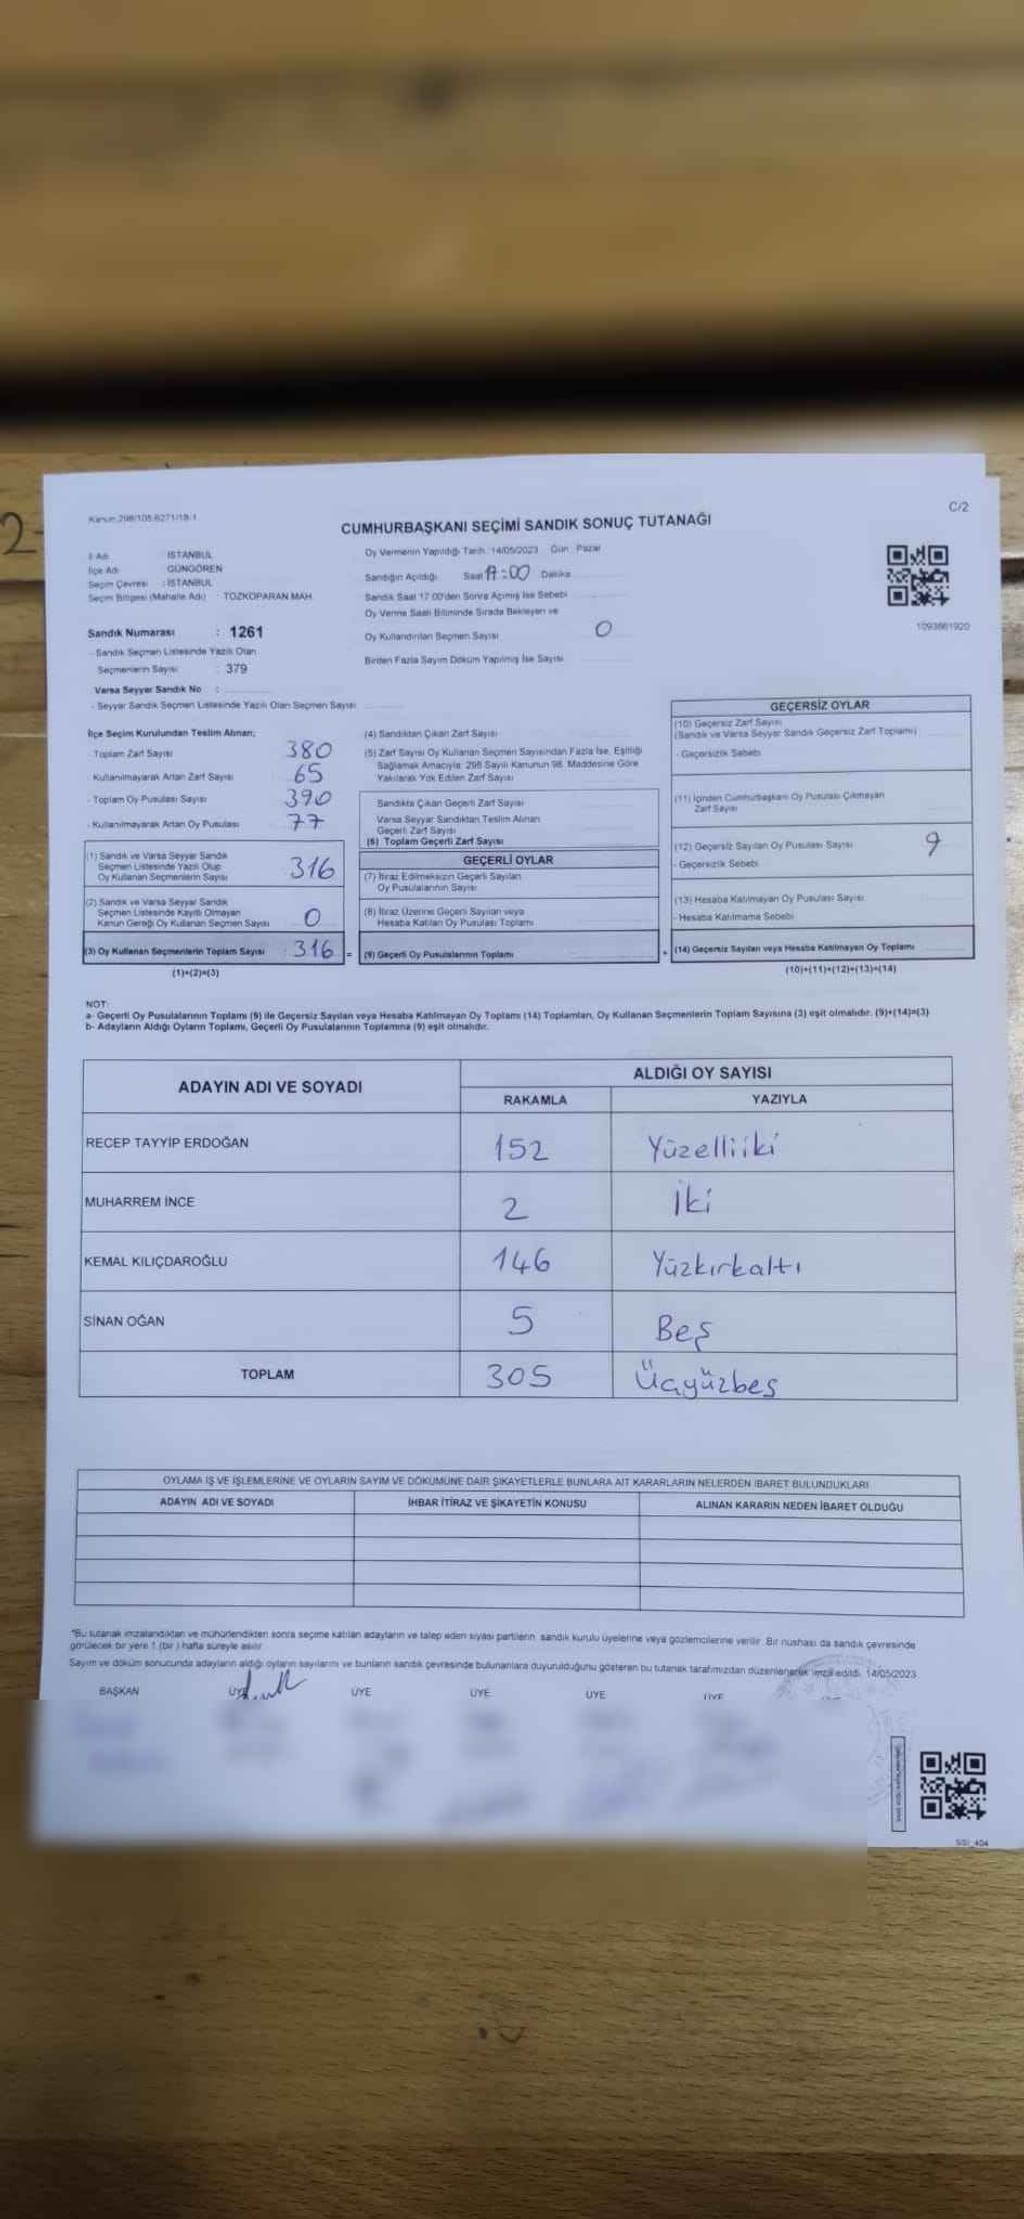 2
Kanun:298/105,6271/19/1
C/2
CUMHURBAŞKANI SEÇİMİ SANDIK SONUÇ TUTANAĞI
İl Adı : İSTANBUL
İlçe Adı : GÜNGÖREN
Seçim Çevresi : İSTANBUL
Seçim Bölgesi (Mahalle Adı) : TOZKOPARAN MAH.
Sandık Numarası : 1261
- Sandık Seçmen Listesinde Yazılı Olan
Seçmenlerin Sayısı : 379
Varsa Seyyar Sandık No :
- Seyyar Sandık Seçmen Listesinde Yazılı Olan Seçmen Sayısı
Oy Vermenin Yapıldığı Tarih: 14/05/2023 Gün : Pazar
Sandığın Açıldığı Saat 17:00 Dakika
Sandık Saat 17.00'den Sonra Açılmış İse Sebebi
Oy Verme Saati Bitiminde Sırada Bekleyen ve
Oy Kullandırılan Seçmen Sayısı 0
Birden Fazla Sayım Döküm Yapılmış İse Sayısı
1093661920
İlçe Seçim Kurulundan Teslim Alınan;
- Toplam Zarf Sayısı 380
- Kullanılmayarak Artan Zarf Sayısı 65
- Toplam Oy Pusulası Sayısı 390
- Kullanılmayarak Artan Oy Pusulası 77
(1) Sandık ve Varsa Seyyar Sandık
Seçmen Listesinde Yazılı Olup
Oy Kullanan Seçmenlerin Sayısı 316
(2) Sandık ve Varsa Seyyar Sandık
Seçmen Listesinde Kayıtlı Olmayan
Kanun Gereği Oy Kullanan Seçmen Sayısı 0
(3) Oy Kullanan Seçmenlerin Toplam Sayısı 316 =
(1)+(2)=(3)
(4) Sandıktan Çıkan Zarf Sayısı
(5) Zarf Sayısı Oy Kullanan Seçmen Sayısından Fazla İse, Eşitliği
Sağlamak Amacıyla; 298 Sayılı Kanunun 98. Maddesine Göre
Yakılarak Yok Edilen Zarf Sayısı
Sandıkta Çıkan Geçerli Zarf Sayısı
Varsa Seyyar Sandıktan Teslim Alınan
Geçerli Zarf Sayısı
(6) Toplam Geçerli Zarf Sayısı
GEÇERLİ OYLAR
(7) İtiraz Edilmeksizin Geçerli Sayılan
Oy Pusulalarının Sayısı
(8) İtiraz Üzerine Geçerli Sayılan veya
Hesaba Katılan Oy Pusulası Toplamı
(9) Geçerli Oy Pusulalarının Toplamı +
GEÇERSİZ OYLAR
(10) Geçersiz Zarf Sayısı
(Sandık ve Varsa Seyyar Sandık Geçersiz Zarf Toplamı)
- Geçersizlik Sebebi
(11) İçinden Cumhurbaşkanı Oy Pusulası Çıkmayan
Zarf Sayısı
(12) Geçersiz Sayılan Oy Pusulası Sayısı 9
- Geçersizlik Sebebi
(13) Hesaba Katılmayan Oy Pusulası Sayısı
- Hesaba Katılmama Sebebi
(14) Geçersiz Sayılan veya Hesaba Katılmayan Oy Toplamı
(10)+(11)+(12)+(13)=(14)
NOT:
a- Geçerli Oy Pusulalarının Toplamı (9) ile Geçersiz Sayılan veya Hesaba Katılmayan Oy Toplamı (14) Toplamları, Oy Kullanan Seçmenlerin Toplam Sayısına (3) eşit olmalıdır. (9)+(14)=(3)
b- Adayların Aldığı Oyların Toplamı, Geçerli Oy Pusulalarının Toplamına (9) eşit olmalıdır.
ADAYIN ADI VE SOYADI
ALDIĞI OY SAYISI
RAKAMLA YAZIYLA
RECEP TAYYİP ERDOĞAN 152 Yüzelliiki
MUHARREM İNCE 2 İki
KEMAL KILIÇDAROĞLU 146 Yüzkırkaltı
SİNAN OĞAN 5 Beş
TOPLAM 305 Üçyüzbeş
OYLAMA İŞ VE İŞLEMLERİNE VE OYLARIN SAYIM VE DÖKÜMÜNE DAİR ŞİKAYETLERLE BUNLARA AİT KARARLARIN NELERDEN İBARET BULUNDUKLARI
ADAYIN ADI VE SOYADI İHBAR İTİRAZ VE ŞİKAYETİN KONUSU ALINAN KARARIN NEDEN İBARET OLDUĞU
*Bu tutanak imzalandıktan ve mühürlendikten sonra seçime katılan adayların ve talep eden siyasi partilerin sandık kurulu üyelerine veya gözlemcilerine verilir. Bir nüshası da sandık çevresinde
görülecek bir yere 1 (bir ) hafta süreyle asılır.
Sayım ve döküm sonucunda adayların aldığı oyların sayılarını ve bunların sandık çevresinde bulunanlara duyurulduğunu gösteren bu tutanak tarafımızdan düzenlenerek imza edildi. 14/05/2023
BAŞKAN ÜYE ÜYE ÜYE ÜYE ÜYE
SSI_404